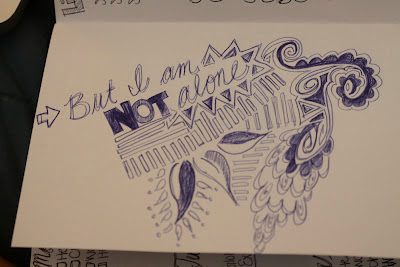 But I am
NOT alone